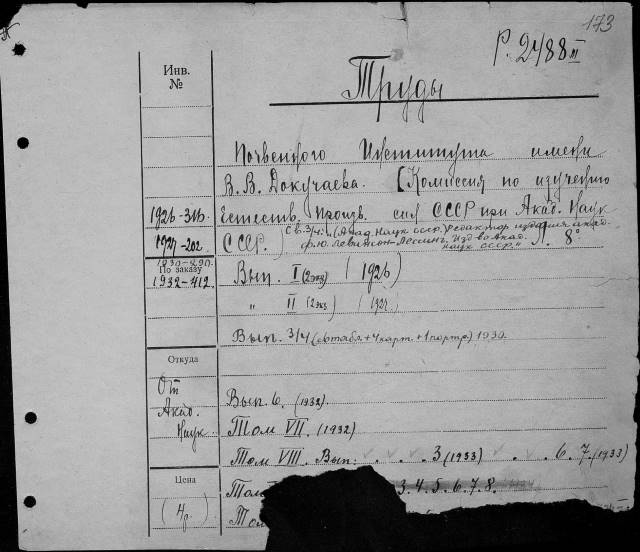 173
Р. 2488 III
Инв.
№
Труды
Почвенного Института имени
В. В. Докучаева. (Комиссия по изучению
1926-316 Естеств. Произв. сил СССР при Акад. Наук
1927-202 СССР.) С в. 3/4: (Акад. Наук СССР.) Редактор издания акад.
Ф. Ю. Левинсон-Лессинг. Изд-во Акад. Л. 8°
Наук СССР."
1930-290
По заказу
1932-412 Вып. I (2 экз) (1926)
" II (2 экз) (1927.)
Вып. 3/4 (6 табл. + 4 карт. + 1 портр) 1930.
Откуда
От
Акад.
Наук
Вып. 6. (1932).
Том VII. (1932)
Том VIII. Вып. 3 (1933) 6. 7. (1933)
Цена
(4р.)
Том 3. 4. 5. 6. 7. 8.
Том